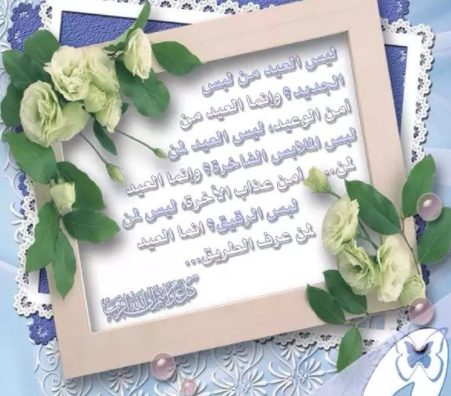 ليس العيد من لبس
الجديد؟ وانما العيد من
أمن الوعيد، ليس العيد لمن
لبس الملابس الفاخرة؟ وانما العيد
لمن... أمن عذاب الأخرة، ليس لمن
لبس الرقيق؟ انما العيد
لمن عرف الطريق...